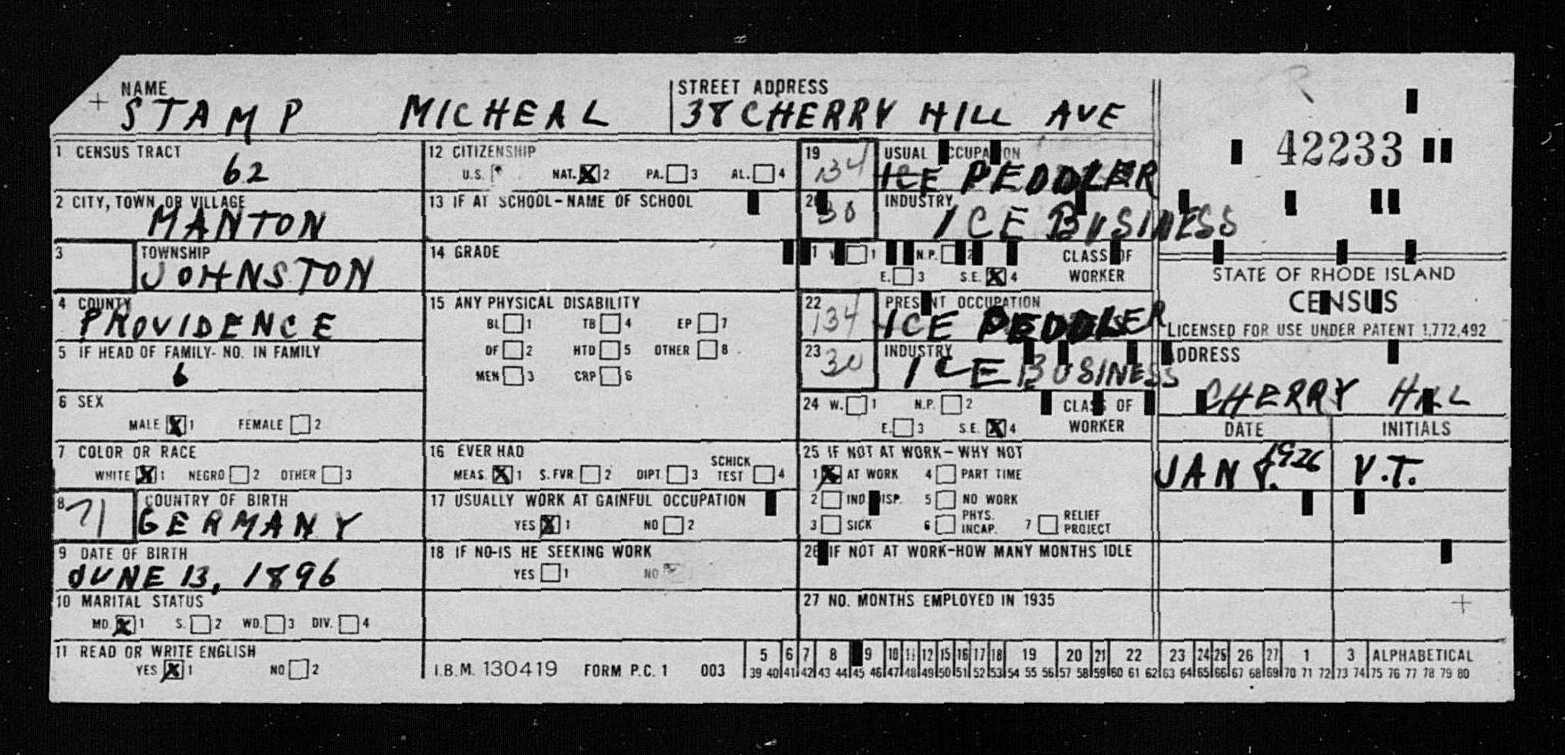 NAME STREET ADDRESS
STAMP MICHEAL 38 CHERRY HILL AVE
42233
1 CENSUS TRACT
62
2 CITY, TOWN OR VILLAGE
MANTON
3 TOWNSHIP
JOHNSTON
4 COUNTY
PROVIDENCE
5 IF HEAD OF FAMILY- NO. IN FAMILY
6
6 SEX
MALE X 1 FEMALE 2
7 COLOR OR RACE
WHITE X 1 NEGRO 2 OTHER 3
8 COUNTRY OF BIRTH
71 GERMANY
9 DATE OF BIRTH
JUNE 13, 1896
10 MARITAL STATUS
MD. X 1 S. 2 WD. 3 DIV. 4
11 READ OR WRITE ENGLISH
YES X 1 NO 2
12 CITIZENSHIP
U.S. NAT. X 2 PA. 3 AL. 4
13 IF AT SCHOOL-NAME OF SCHOOL
14 GRADE
15 ANY PHYSICAL DISABILITY
BL 1 TB 4 EP 7
DF 2 HTD 5 OTHER 8
MEN 3 CRP 6
16 EVER HAD
MEAS. X 1 S. FVR. 2 DIPT. 3 SCHICK TEST 4
17 USUALLY WORK AT GAINFUL OCCUPATION
YES X 1 NO 2
18 IF NO-IS HE SEEKING WORK
YES 1 NO
I.B.M. 130419 FORM P.C. 1 003
19 USUAL OCCUPATION
134 ICE PEDDLER
20 INDUSTRY
30 ICE BUSINESS
1 N.P. 2 CLASS OF
E. 3 S.E. X 4 WORKER
22 PRESENT OCCUPATION
134 ICE PEDDLER
23 INDUSTRY
30 ICE BUSINESS
24 W. 1 N.P. 2 CLASS OF
E. 3 S.E. X 4 WORKER
25 IF NOT AT WORK-WHY NOT
1 X AT WORK 4 PART TIME
2 IND DISP. 5 NO WORK
3 SICK 6 PHYS. INCAP. 7 RELIEF PROJECT
26 IF NOT AT WORK-HOW MANY MONTHS IDLE
27 NO. MONTHS EMPLOYED IN 1935
STATE OF RHODE ISLAND
CENSUS
LICENSED FOR USE UNDER PATENT 1,772,492
ADDRESS
CHERRY HILL
DATE INITIALS
JAN 1926 V.T.
5 6 7 8 9 10 11 12 15 16 17 18 19 20 21 22 23 24 25 26 27 1 3 ALPHABETICAL
39 40 41 42 43 44 45 46 47 48 49 50 51 52 53 54 55 56 57 58 59 60 61 62 63 64 65 66 67 68 69 70 71 72 73 74 75 76 77 78 79 80